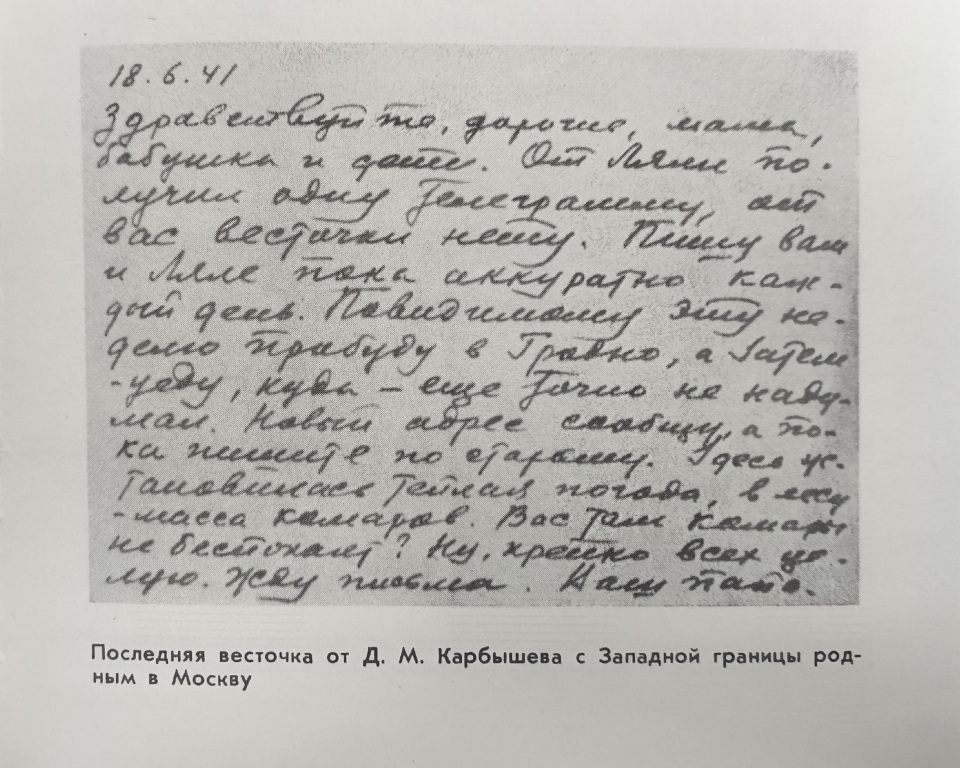 18.6.41
Здравствуйте, дорогие, мама,
бабушка и дети. От Ляли по-
лучил одну телеграмму, от
вас весточки нету. Пишу вам
и Ляле пока аккуратно каж-
дый день. Повидимому эту не-
делю прабуду в Гродно, а затем
-уеду, куды – еще точно не наду-
мал. Новый адрес сообщу, а по-
ка пишите по старому. Здесь ус-
тановилась теплая погода, в лесу
-масса комаров. Вас там комары
не беспокоят? Ну, крепко всех це-
лую. Жду письма. Ваш папа.
Последняя весточка от Д. М. Карбышева с Западной границы род-
ным в Москву